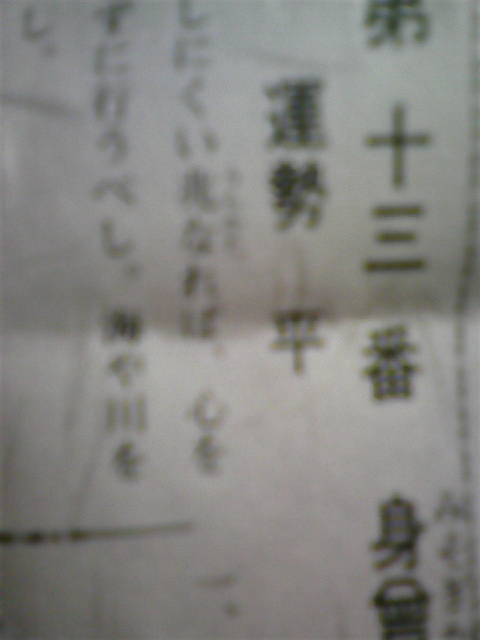 第十三番 身
運勢 平
しにくい兆なれば、心を
ずに行うべし。海や川を
し。
一、